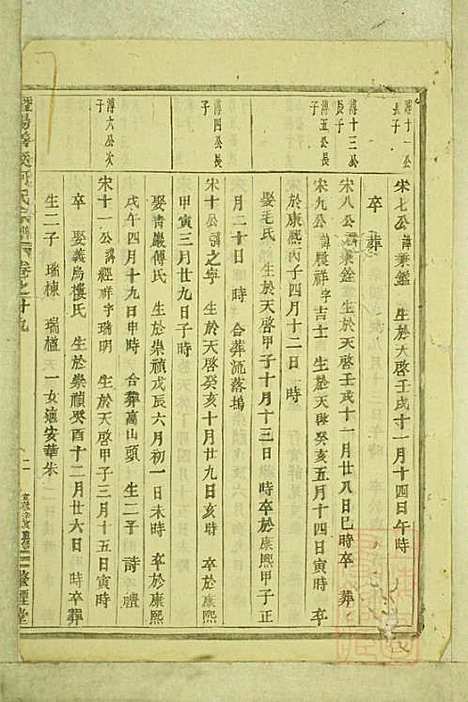 溥十一公
長子
宋七公諱秉鑑 生於天啓壬戌十一月十四日午時
卒 葬
溥十三公
長子
宋八公諱秉銓 生於天啓壬戌十一月廿八日巳時卒 葬
溥五公長
子
宋九公諱殷祥字吉士 生於天啓癸亥五月十四日寅時 卒
於康熙丙子四月十二日 時
娶毛氏 生於天啓甲子十月十三日 時卒於康熙甲子正
月二十日 時 合葬流落塢
溥四公長
子
宋十公諱之寧 生於天啓癸亥十月廿九日亥時 卒於康熙
甲寅三月廿九日子時
娶青巖傅氏 生於崇禎戊辰六月初一日未時 卒於康熙
戊午四月十九日申時 合葬高山頭 生二子 詩 禮
溥六公次
子
宋十一公諱經祥字瑞明 生於天啓甲子三月十五日寅時
卒 娶義烏樓氏 生於崇禎癸酉十二月廿六日 時卒葬
生二子 瑞棟 瑞楹 一女適安華朱
暨陽 氏宗譜 卷之十九